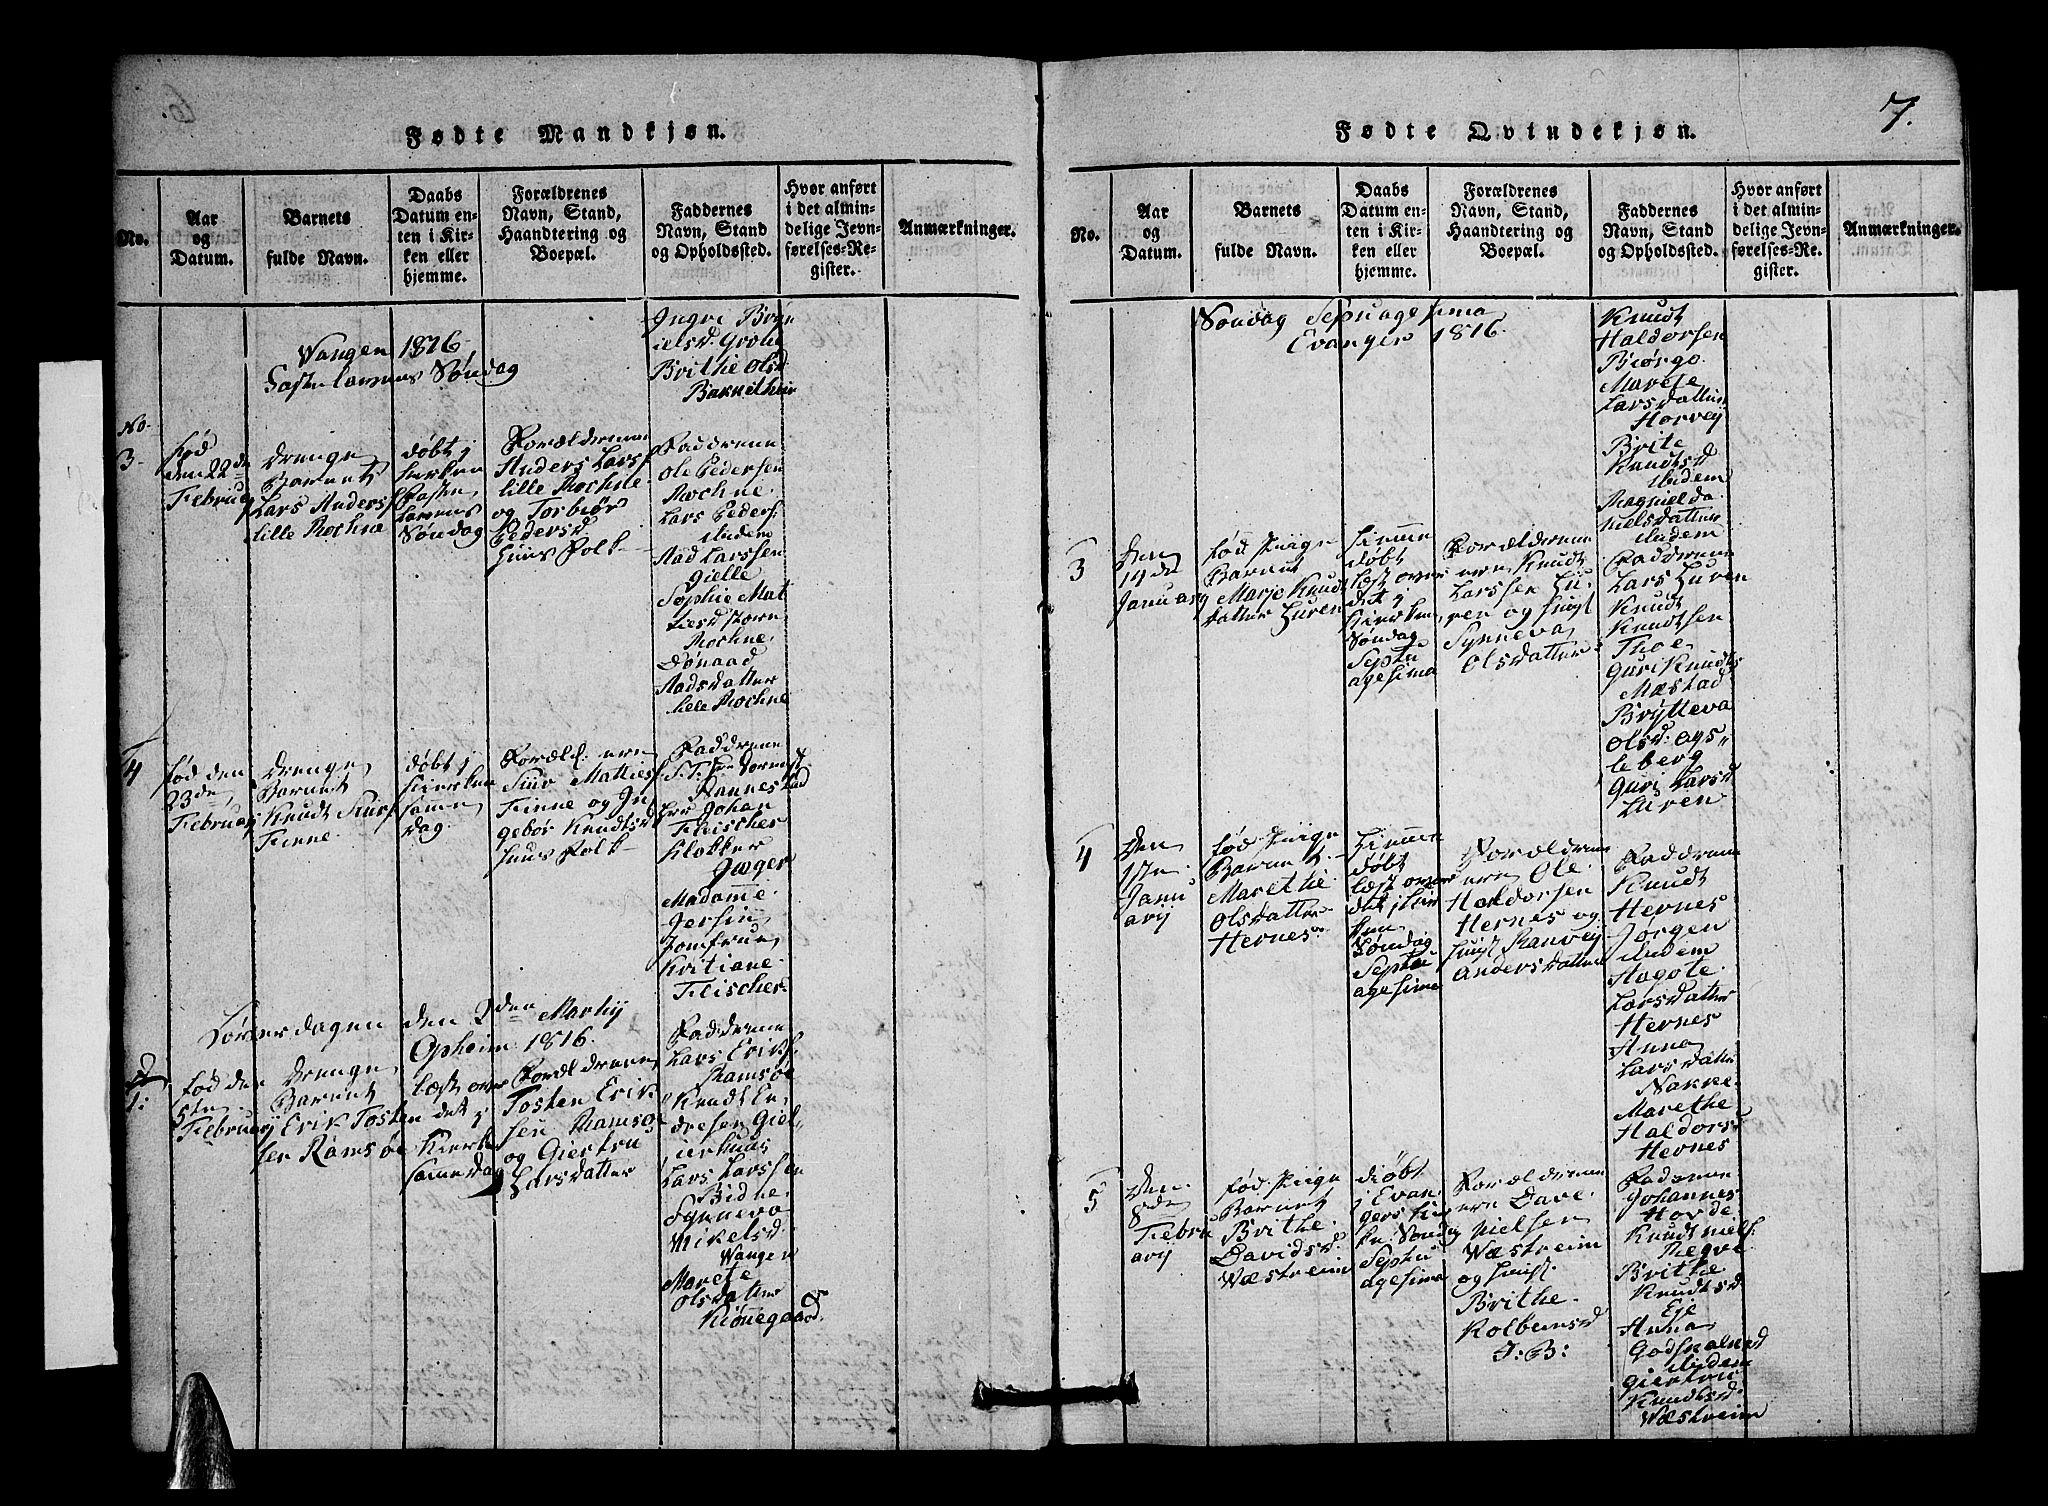 7.
Fødte Mandkjøn.
No.
Aar
og
Datum.
Barnets
fulde Navn.
Daabs
Datum en-
ten i Kir-
ken eller
hjemme.
Forældrenes
Navn, Stand,
Haandtering og
Boepæl.
Faddernes
Navn, Stand
og Opholdssted.
Hvor anført
i det almin-
delige Jevn-
førelses-Re-
gister.
Anmærkninger.
Wangen 1816
Søndag
Ingve Bryn
ielsd. Grove
Brithe Olsd
Bakkethun
No.
3
fød
den 22de
Februarij
Drenge
Barnet
Lars Andersf
lille Mochne
døbt j
Kirken
Faste
lavens
Søndag
Forældrerne
Anders Larsf
lille Mochne
og Torbiør
Pedersd
Huus Folk
Faddrene
Ole Pedersen
Mochne
Lars Pedersf
ibidem
Aad Larssen
Gielle
Sophie Mat
tiesd
Mochne
Aadsdatter
lille Mochne
4
fød den
23de
Februarij
Drenge
Barnet
Knudt
Finne
døbt j
Kirken
samme
dag.
Foræld. ere
Mathiesf
Finne og In
gebør Knudtsd
Huus Folk
Faddrene
Rannestad
Hr Johan
Fleischer
Klokker
Jæger
Madamme
Jersin
Jomfrue
Kritiane
Fleischer
dagen den 2den Martij
Opheim 1816.
1:
fød den
5te
Februarij
Drenge
Barnet
Erik Tosten
sen Ramsøe
læst over
det j
Kierken
samme dag
Forældrene
Tosten Erik
sen Ramsøe
og Giertru
Larsdatter
Faddrene
Lars Eriksf.
Ramsøe
Knudt En
dresen Giel,
ierhuus
Lars Larssen
Bidne
Synneva
Mikelsd.
Wangen
Marete
Olsdatter
Kiønegaard.
Fødte Qvindekjøn.
No.
Aar
og
Datum.
Barnets
fulde Navn.
Daabs
Datum en-
ten i Kir-
ken eller
hjemme.
Forældrenes
Navn, Stand,
Haandtering og
Boepæl.
Faddernes
Navn, Stand
og Opholdssted.
Hvor anført
i det almin-
delige Jevn-
førelses-Re-
gister.
Anmærkninger.
Søndag Septuagesima
Evanger 1816.
Knudt
Haldorsen
Biørgo
Marete
Larsdatter
Horvey
Brite
Knudtsd
ibidem
Magnielda
Nielsdatter
ibidem
3
Den
14de
Januarij
fød Piige
Barnet
Marje Knudt
datter Luren
Hiemme
døbt
læst over
det j
Kierken
Søndag
Septu
agesima
Forældrerne
ere Knudt
Larssen Lu-
ren og Huust
Synneva
Olsdatter
Faddrene
Lars Luren
Knudt
Knudtsen
Thoe
Guri Knudts
Mæstad
Brytteva
Olsd: Ags,,
leberg
Guri Larsd
Luren
4
Den
17de
Janu
arij
fød Piige
Barnet.
Marethe
Olsdatter
Hernes
Hiemme
døbt
læst over
det j Kir
ken
Søndag
Septu
agesima
Forældrene
ere Ole
Haldorsen
Hernes og
Huust Ranvey
Andersdatter
Faddrene
Knudt
Hernes
Jorgen
ibidem
Hagote
Larsdatter
Hernes
Anna
Larsdatter
Nakke
Marethe
Haldorsd
Hernes
5
Den
8de
Febru
arij
fød Piige
Barnet
Brithe
Davidsd.
Wæstreim
diøbt
j Evan
gers Kir
ke Søndag
Septu
agesima
Forældrerne
ere Dave
Nielsen
Wæstreim
og Huust.
Brithe
Kolbensd
J: B:
Faderne
Johannes
Horde
Knudt Nielsf.
Regve
Brithe
Knudtsd
Eje
Anna
Godskalksd
ibidem
Giertru
Knudtsd.
Wæstreim